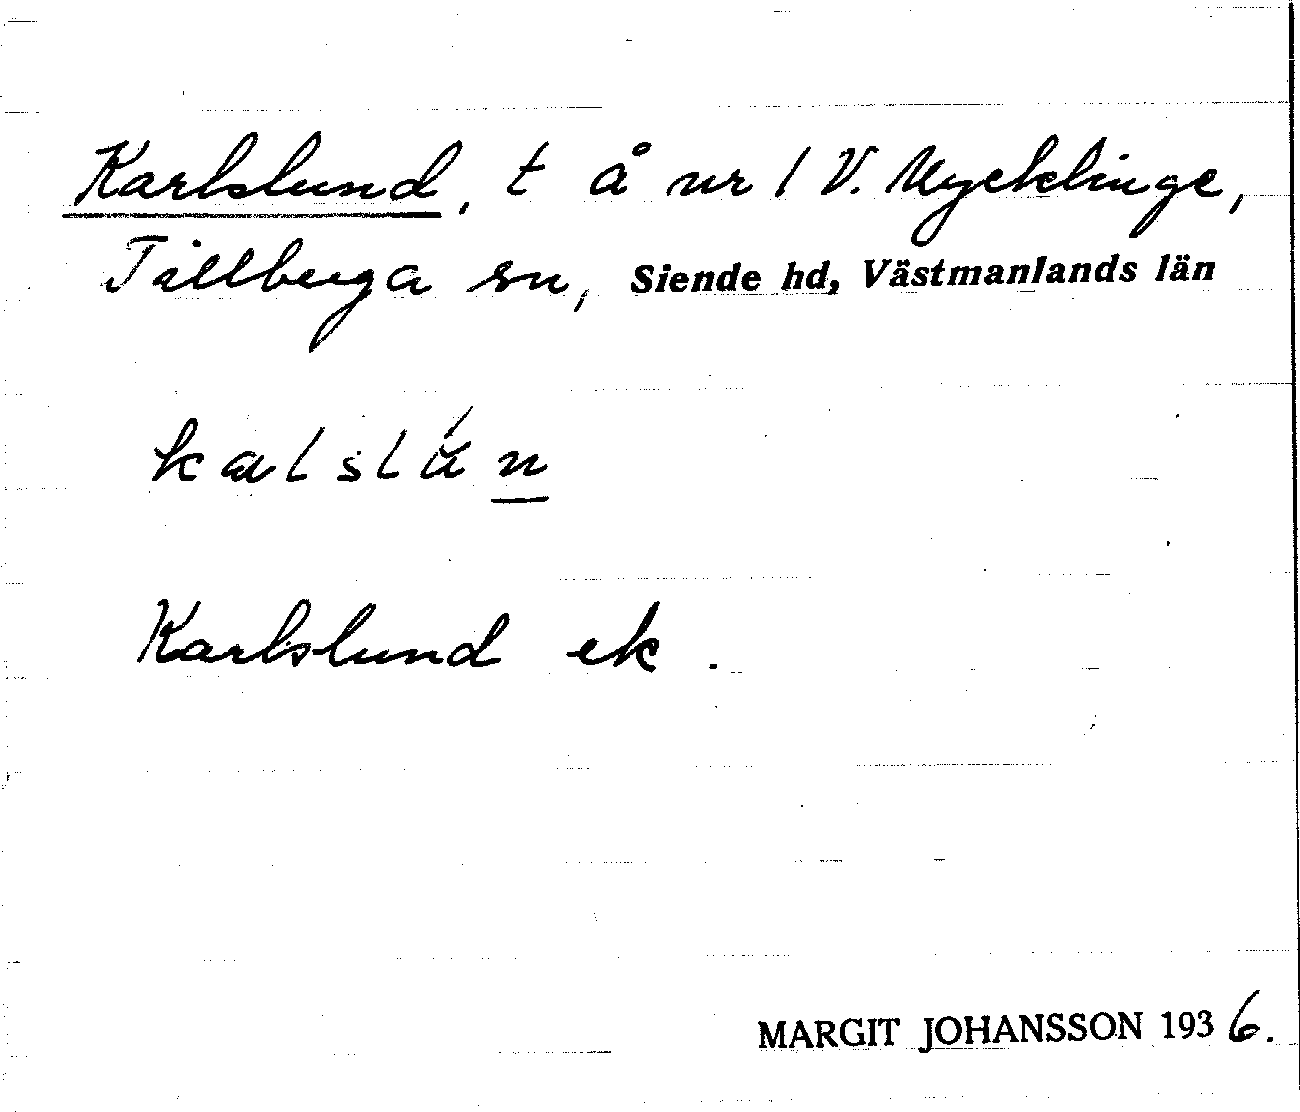 Karlslund, t å nr 1 V. Mycklinge,
Tillberga sn, Siende hd, Västmanlands län
kalslún
Karlslund ek.
MARGIT JOHANSSON 1936.